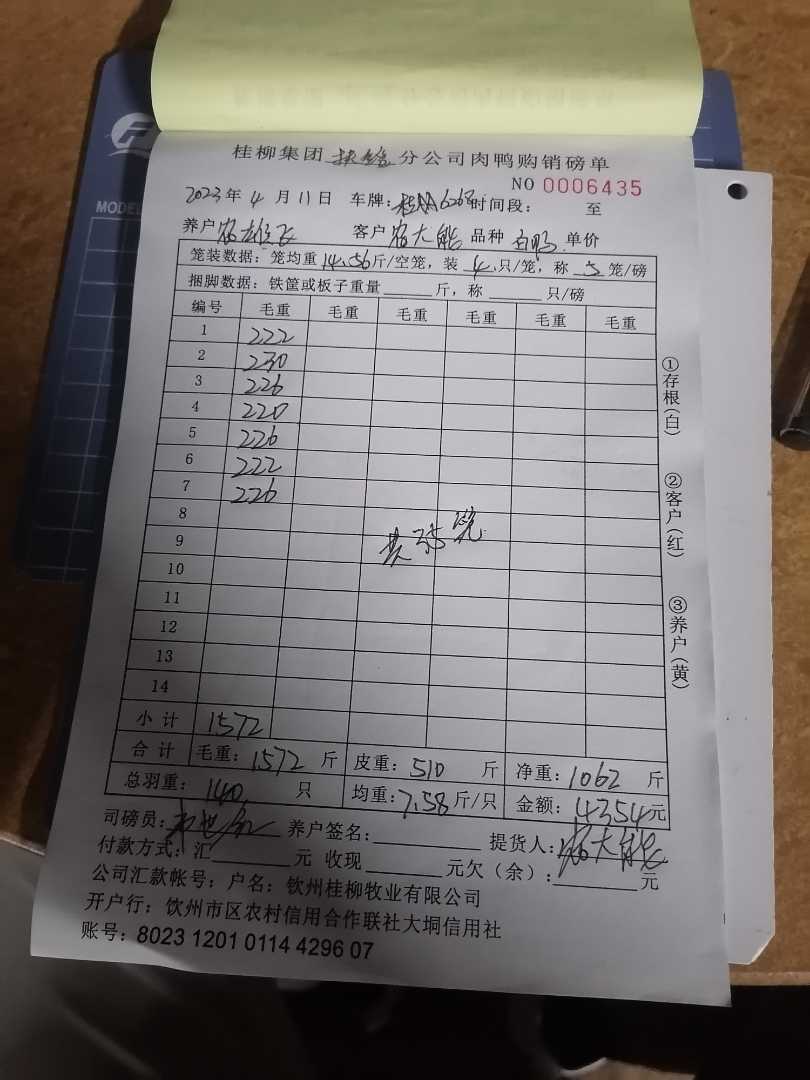 桂柳集团 扶绥 分公司肉鸭购销磅单
NO 0006435
2023年 4 月 11日 车牌: 时间段: 至
养户 客户 品种 白鸭 单价
笼装数据: 笼均重14.56斤/空笼, 装 4 只/笼, 称 5 笼/磅
捆脚数据: 铁筐或板子重量 斤, 称 只/磅
编号 毛重 毛重 毛重 毛重 毛重 毛重
1 222
2 230
3 226
4 220
5 226
6 222
7 226
8
9
10
11
12
13
14
共35笼
小计 1572
合计 毛重: 1572 斤 皮重: 510 斤 净重: 1062 斤
总羽重: 140 只 均重: 7.58斤/只 金额: 4354元
司磅员: 养户签名: 提货人:
付款方式: 汇 元 收现 元欠(余): 元
公司汇款帐号: 户名: 钦州桂柳牧业有限公司
开户行: 饮州市区农村信用合作联社大垌信用社
账号: 8023 1201 0114 4296 07
①存根(白)
②客户(红)
③养户(黄)
MODEL